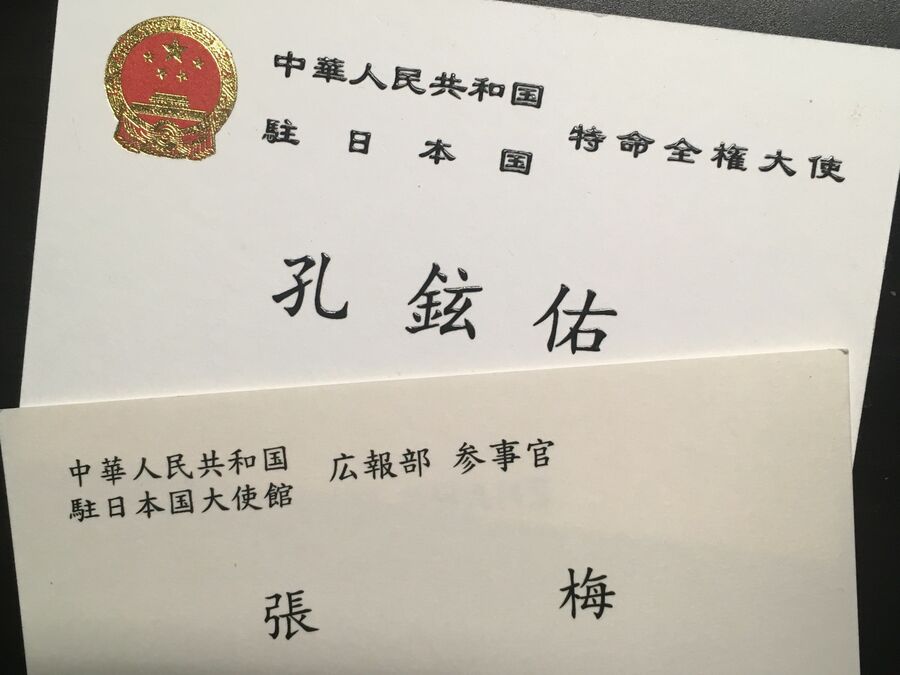 中華人民共和国
駐日本国 特命全権大使
孔鉉佑
中華人民共和国
駐日本国大使館 広報部 参事官
張 梅